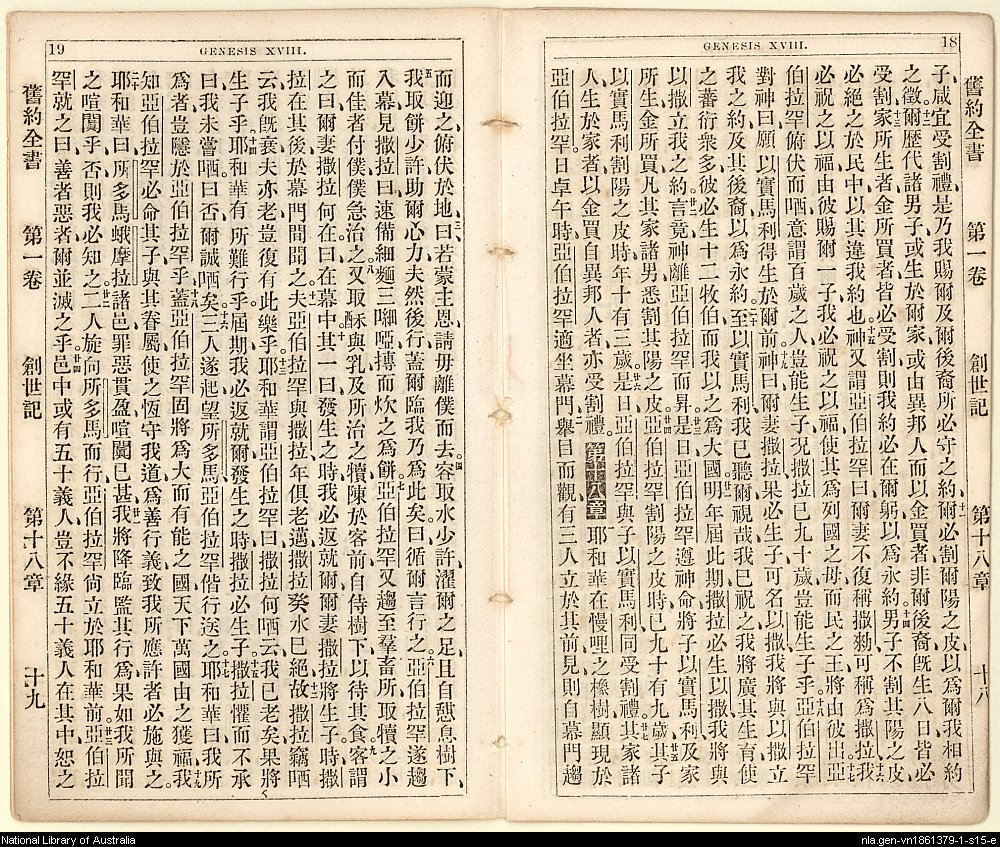 GENESIS XVIII. 18
舊約全書 第一卷 創世記 第十八章 十八
子、咸宜受割禮、是乃我賜爾及爾後裔所必守之約、十一爾必割爾陽之皮、以爲爾我相約
之徵。十二爾歷代諸男子、或生於爾家、或由異邦人而以金買者、非爾後裔、旣生八日、皆必
受割、十三家所生者、金所買者、皆必受割、則我約必在爾躬、以爲永約、十四男子不割其陽之皮、
必絕之於民中、以其違我約也。十五神又謂亞伯拉罕曰、爾妻不復稱撒勑、可稱爲撒拉、十六我
必祝之以福、由彼賜爾一子、我必祝之以福、使其爲列國之母、而民之王將由彼出。十七亞
伯拉罕俯伏而哂、意謂百歲之人、豈能生子、況撒拉已九十歲、豈能生子乎。十八亞伯拉罕
對神曰、願以實馬利得生於爾前。十九神曰、爾妻撒拉果必生子、可名以撒、我將與以撒立
我之約、及其後裔以爲永約、二十至以實馬利、我已聽爾、視哉、我已祝之、我將廣其生育、使
之蕃衍衆多、彼必生十二牧伯、而我以之爲大國、廿一明年屆此期、撒拉必生以撒、我將與
以撒立我之約。廿二言竟、神離亞伯拉罕而昇。廿三是日亞伯拉罕遵神命、將子以實馬利、及家
所生金所買、凡其家諸男、悉割其陽之皮、廿四亞伯拉罕割陽之皮時、已九十有九歲、廿五其子
以實馬利割陽之皮時、年十有三歲。廿六是日亞伯拉罕與子以實馬利同受割禮、廿七其家諸
人生於家者、以金買自異邦人者、亦受割禮。第十八章 耶和華在慢哩之橡樹、顯現於
亞伯拉罕、日卓午時、亞伯拉罕適坐幕門、二舉目而觀、有三人立於其前、見則自幕門趨
19 GENESIS XVIII.
而迎之、俯伏於地、三曰、若蒙主恩、請毋離僕而去、四容取水少許、濯爾之足、且自憩息樹下、
五我取餅少許、助爾心力、夫然後行、蓋爾臨我乃爲此矣。曰、循爾言行之。六亞伯拉罕遂趨
入幕、見撒拉、曰、速備細麵三唎啞、摶而炊之爲餅。七亞伯拉罕又趨至羣畜所、取犢之小
而佳者付僕、僕急治之、八又取酥與乳、及所治之犢、陳於客前、自侍樹下以待其食。九客謂
之曰、爾妻撒拉何在、曰、在幕中。十其一曰、發生之時、我必返就爾、爾妻撒拉將生子、時撒
拉在其後、於幕門間聞之、十一夫亞伯拉罕與撒拉年俱老邁、撒拉癸水已絕、十二故撒拉竊哂
云、我旣衰、夫亦老、豈復有此樂乎。十三耶和華謂亞伯拉罕曰、撒拉何哂、云我已老矣、果將
生子乎、十四耶和華有所難行乎、屆期我必返就爾、發生之時、撒拉必生子。十五撒拉懼而不承
曰、我未嘗哂、曰、否、爾誠哂矣。十六三人遂起、望所多馬、亞伯拉罕偕行送之。十七耶和華曰、我所
爲者、豈隱於亞伯拉罕乎、十八蓋亞伯拉罕固將爲大而有能之國、天下萬國由之獲福、十九我
知亞伯拉罕必命其子、與其眷屬、使之恆守我道、爲善行義、致我所應許者必施與之。
二十耶和華曰、所多馬、蛾摩拉諸邑、罪惡貫盈、喧闐已甚、廿一我將降臨、監其行爲、果如我所聞
之喧闐乎、否則我必知之。廿二二人旋向所多馬而行、亞伯拉罕尙立於耶和華前、廿三亞伯拉
罕就之曰、善者惡者、爾並滅之乎、廿四邑中或有五十義人、豈不緣五十義人在其中、恕之
舊約全書 第一卷 創世記 第十八章 十九
National Library of Australia
nla.gen-vn1861379-1-s15-e